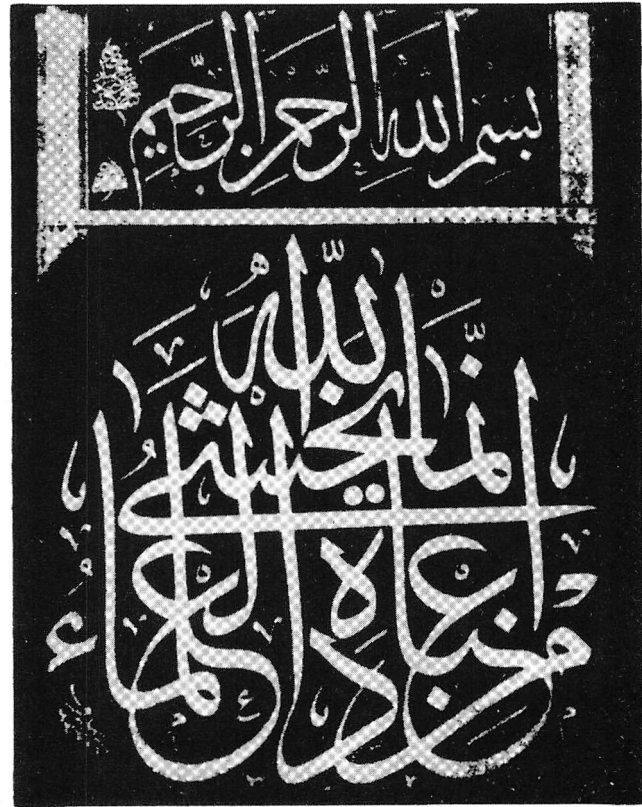 بِسْمِ اللهِ الرَّحْمٰنِ الرَّحِيمِ
إِنَّمَا يَخْشَى اللهَ مِنْ عِبَادِهِ الْعُلَمَاءُ